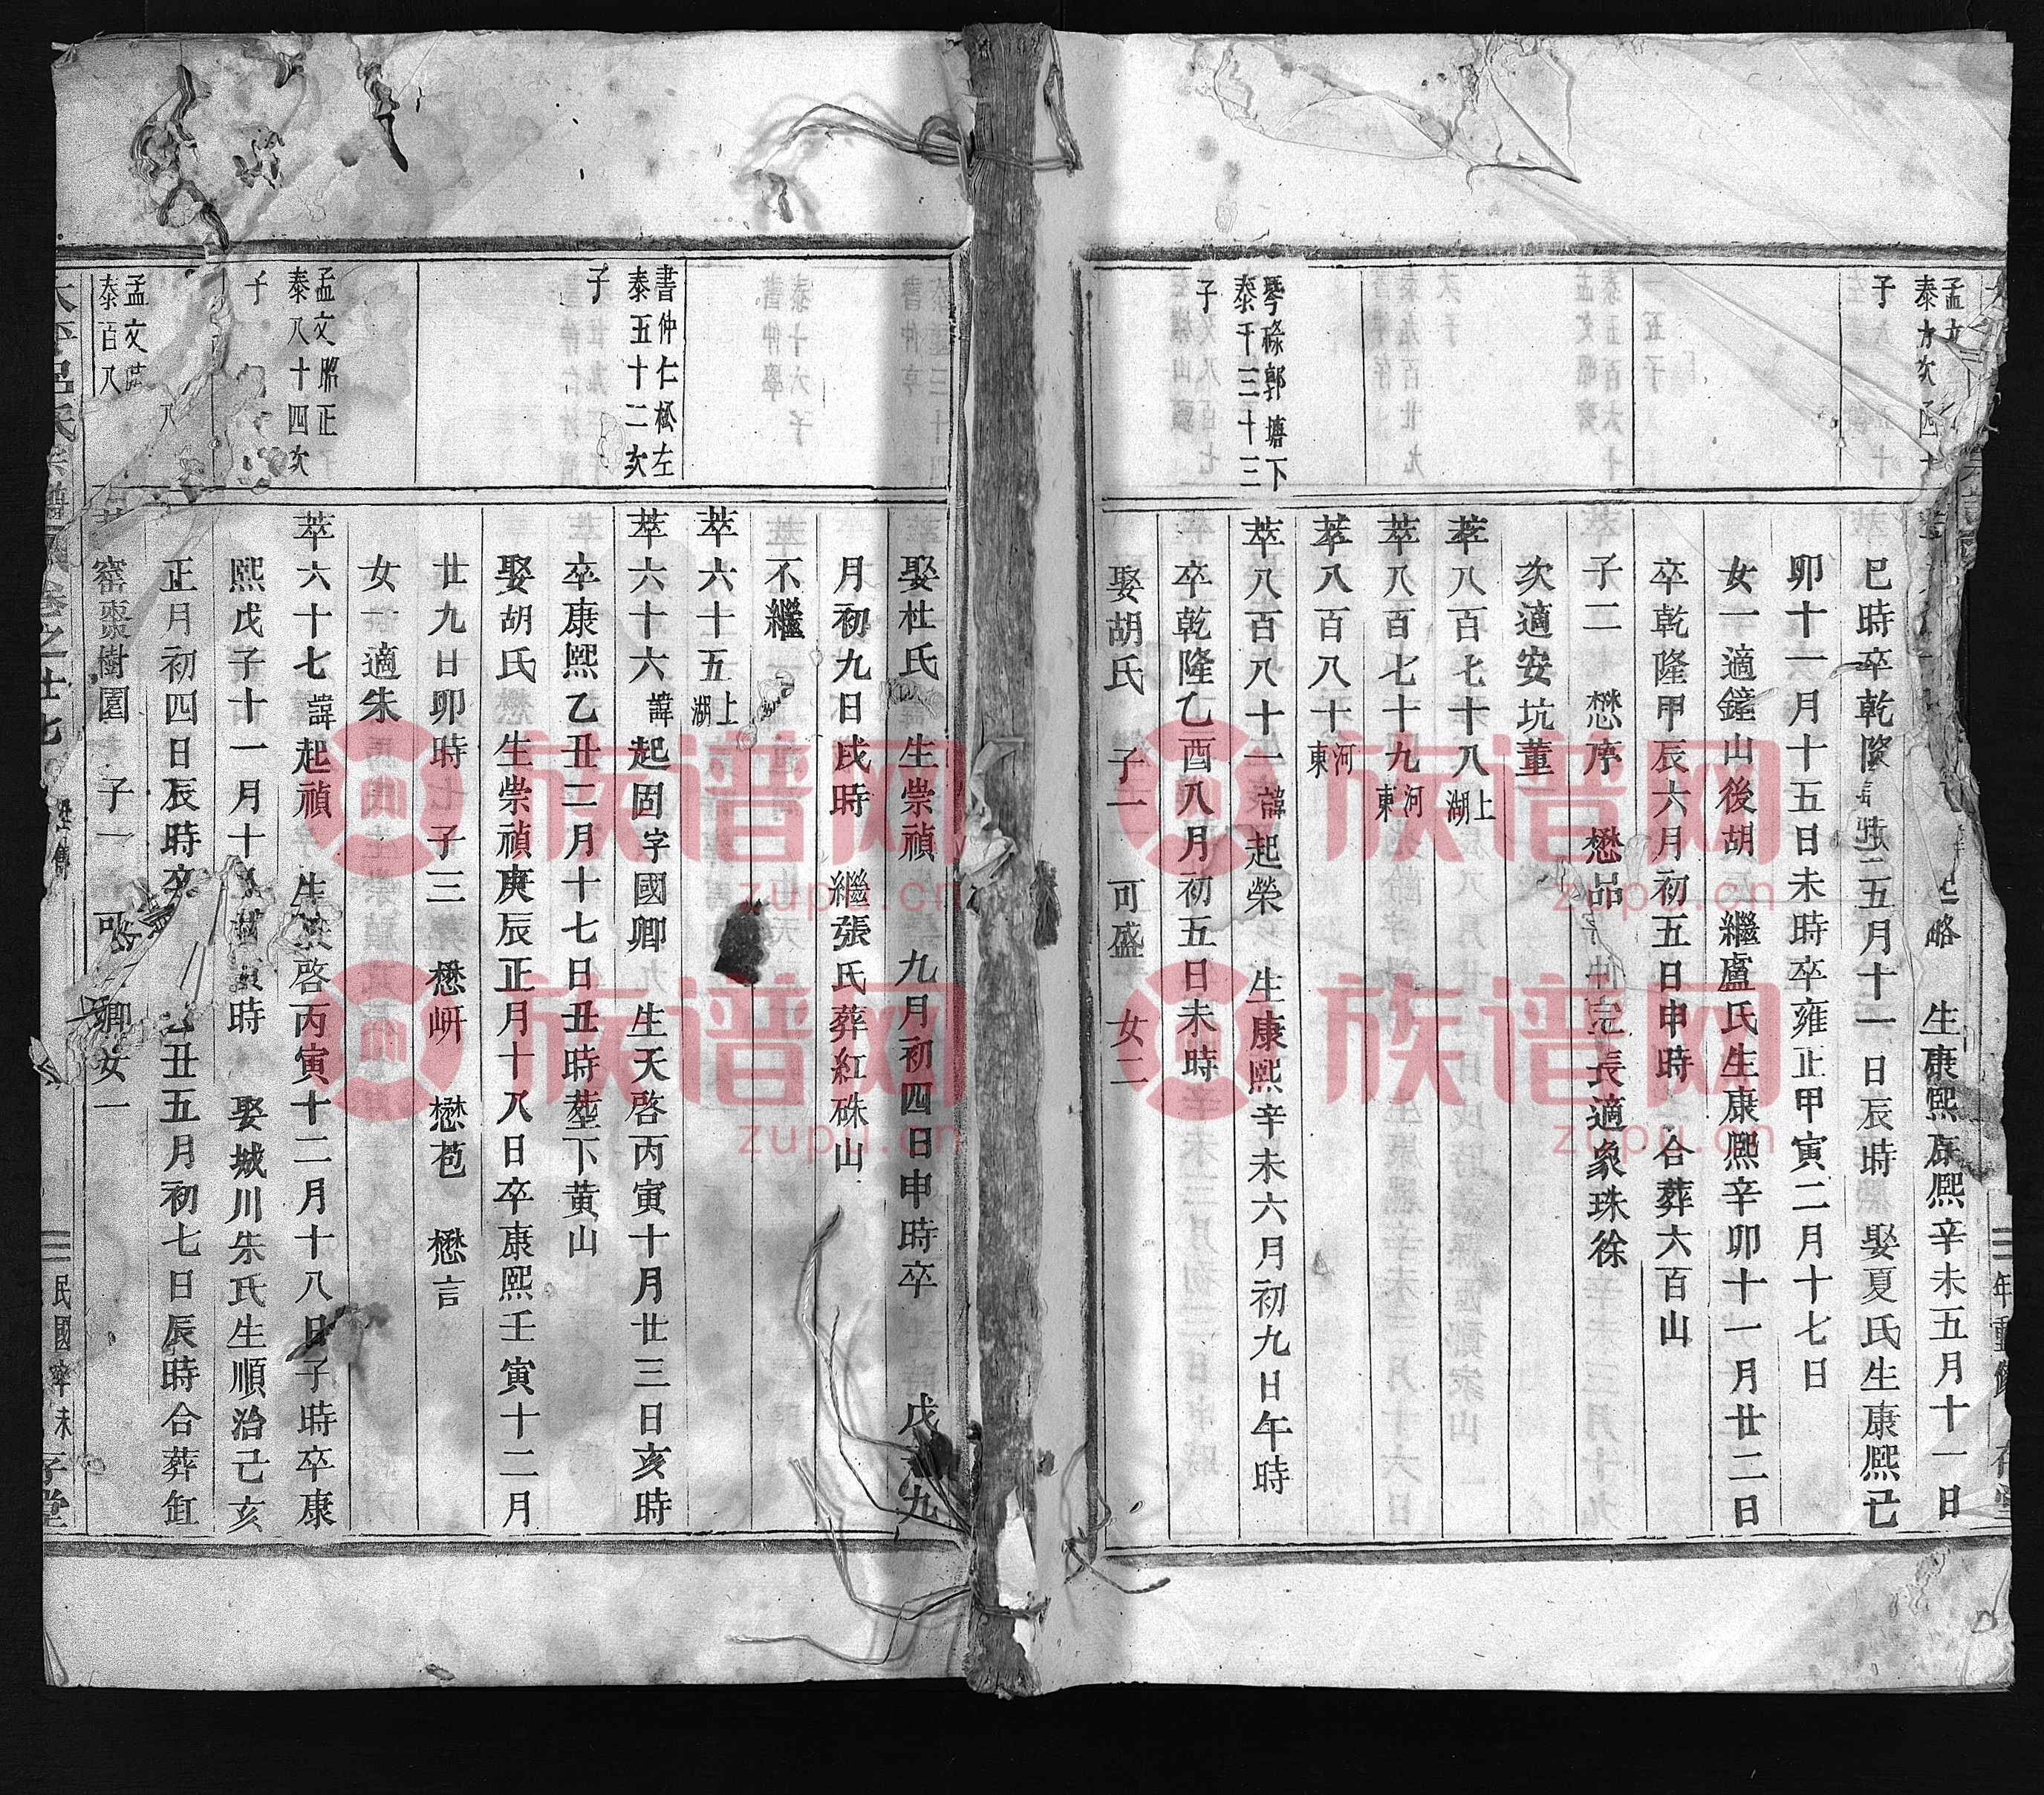 孟文
泰九次四十
子
生康熙康熙辛未五月十一日
巳時卒乾隆五月十一日辰時 娶夏氏生康熙己
卯十一月十五日未時卒雍正甲寅二月十七日
女一適鐘山後胡 繼盧氏生康熙辛卯十一月廿二日
卒乾隆甲辰六月初五日申時 合葬六百山
子二 懋序 懋品 長適象珠徐
次適安坑董
萃八百七十八上湖
萃八百七十九河東
萃八百八十河東
琴祿郭塘下
泰千三十三
子
萃八百八十一諱起榮 生康熙辛未六月初九日午時
卒乾隆乙酉八月初五日未時
娶胡氏 子一 可盛 女二
年重修
娶杜氏 生崇禎 九月初四日申時卒 戊 九
月初九日戌時 繼張氏葬紅硃山
不繼
萃六十五上湖
書仲仁松左
泰五十二次
子
萃六十六諱起固字國卿 生天啓丙寅十月廿三日亥時
卒康熙乙丑二月十七日丑時塟下黃山
娶胡氏 生崇禎庚辰正月十八日卒康熙壬寅十二月
廿九日卯時 子三 懋岍 懋苞 懋言
女一適朱
孟文昭正
泰八十四次
子
萃六十七諱起禎 生天啓丙寅十二月十八日子時卒康
熙戊子十一月十 寅時 娶城川朱氏生順治己亥
正月初四日辰時卒 己丑五月初七日辰時合葬缸
孟文
泰百八
窰棗樹園 子一 可 卿女一
太平呂氏宗譜 卷之廿七
民國辛未
堂
族谱网
zupu.cn
族谱网
zupu.cn
族谱网
zupu.cn
族谱网
zupu.cn